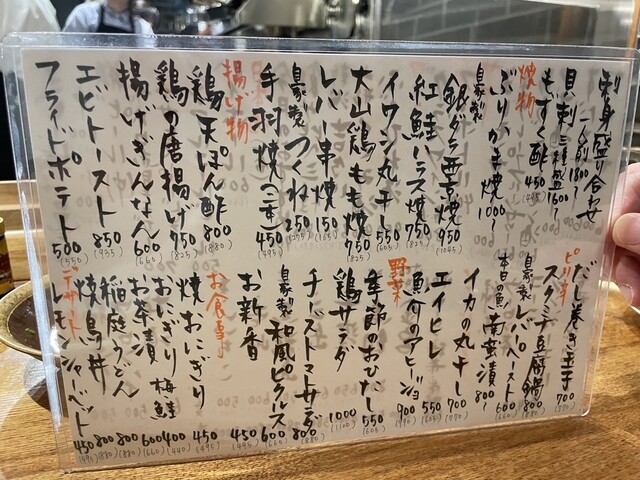 刺身盛り合わせ
一人前1800〜
貝刺三種盛1600〜
もずく酢 450
(495)
焼物
ぶりかま焼1000〜
自家製
銀ダラ西京焼950
(1045)
紅鮭ハラス焼750
(825)
イワシ丸干し550
(605)
大山鶏もも焼750
(825)
レバー串焼150
(165)
自家製つくね250
(275)
手羽焼(二本)450
(495)
揚げ物
鶏天ぽん酢800
(880)
鶏の唐揚げ750
(825)
揚げぎんなん600
(660)
エビトースト850
(935)
フライドポテト500
(550)
だし巻き玉子700
(770)
ピリ辛
スタミナ豆腐鍋800
(880)
自家製レバーペースト600
(660)
本日の魚南蛮漬800〜
イカの丸干し700
(770)
エイヒレ550
(605)
魚介のアヒージョ900
(990)
野菜
季節のおひたし550
(605)
鶏サラダ1000
(1100)
チーズトマトサラダ800
(880)
自家製和風ピクルス600
(660)
お新香450
(495)
お食事
焼おにぎり450
(495)
おにぎり梅鮭400
(440)
お茶漬600
(660)
稲庭うどん800
(880)
焼鳥丼800
(880)
デザート
レモンシャーベット450
(495)